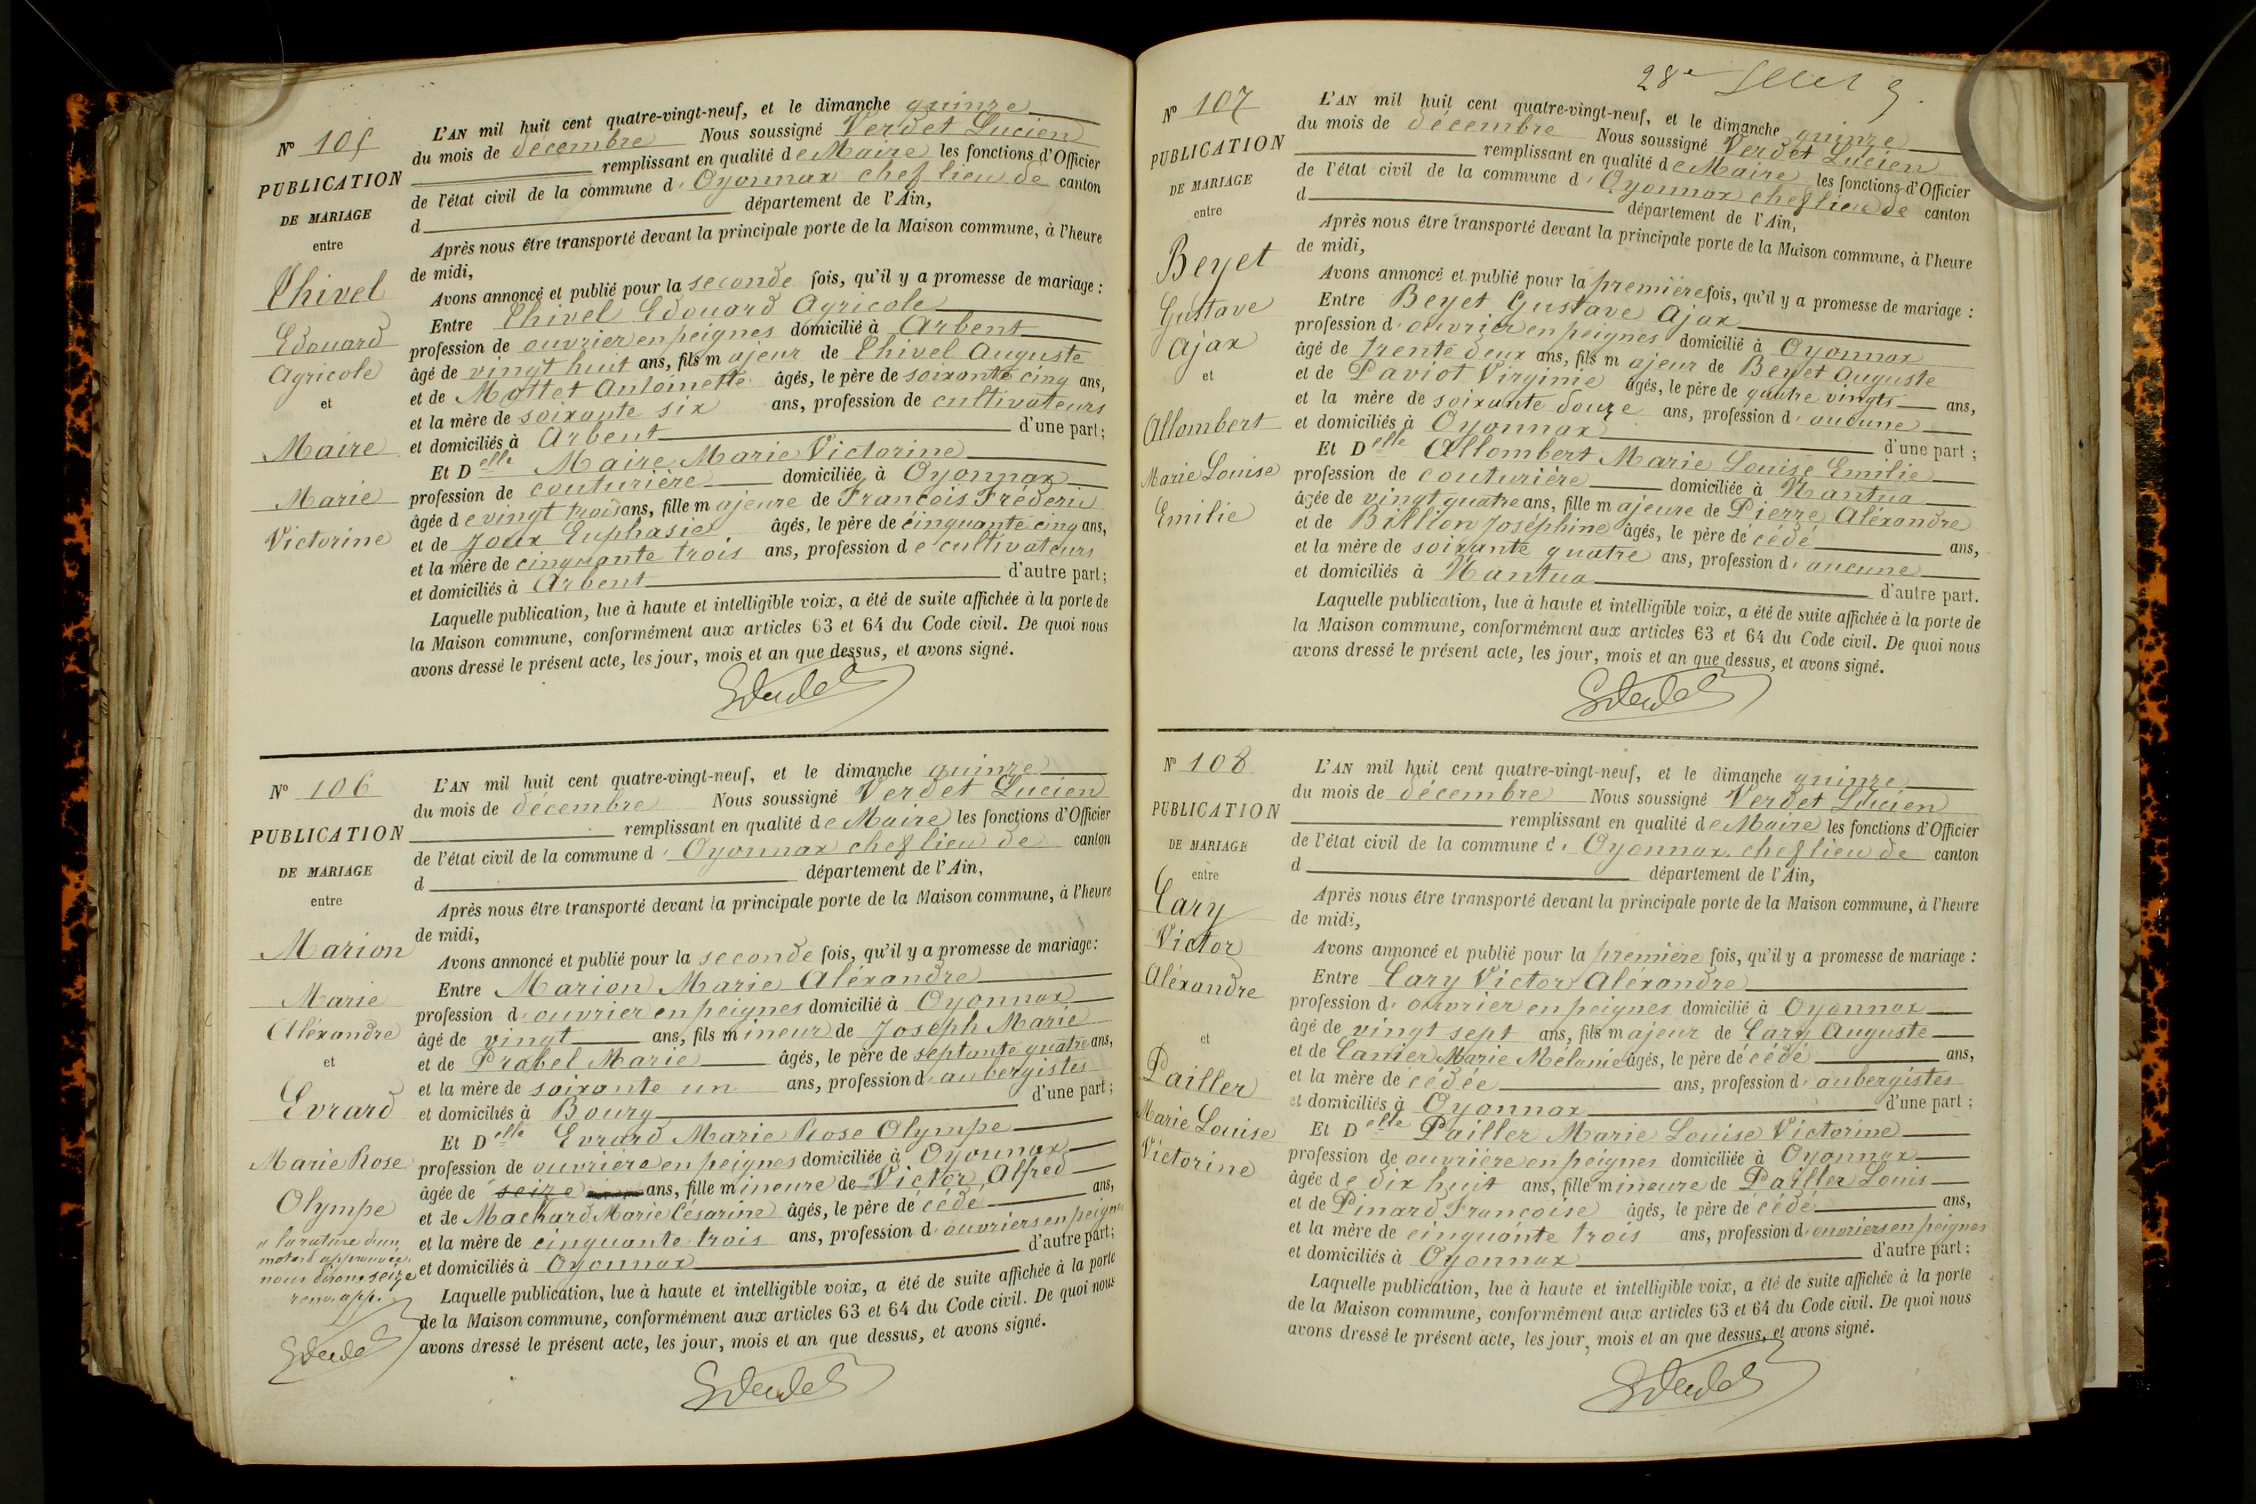 Nº 105
PUBLICATION
DE MARIAGE
entre
Chivel
Edouard
Agricole
et
Maire
Marie
Victorine
L'AN mil huit cent quatre-vingt-neuf, et le dimanche quinze
du mois de décembre Nous soussigné Verdet Lucien
remplissant en qualité de Maire les fonctions d'Officier
de l'état civil de la commune d'Oyonnax chef lieu de canton
d département de l'Ain,
Après nous être transporté devant la principale porte de la Maison commune, à l'heure
de midi,
Avons annoncé et publié pour la seconde fois, qu'il y a promesse de mariage :
Entre Chivel Edouard Agricole
profession de ouvrier en peignes domicilié à Arbent
âgé de vingt huit ans, fils majeur de Chivel Auguste
et de Mottet Antoinette âgés, le père de soixante cinq ans,
et la mère de soixante six ans, profession de cultivateurs
et domiciliés à Arbent d'une part ;
Et Delle Maire Marie Victorine
profession de couturière domiciliée à Oyonnax
âgée de vingt trois ans, fille majeure de François Fréderic
et de Joux Euphasie âgés, le père de cinquante cinq ans,
et la mère de cinquante trois ans, profession de cultivateurs
et domiciliés à Arbent d'autre part ;
Laquelle publication, lue à haute et intelligible voix, a été de suite affichée à la porte de
la Maison commune, conformément aux articles 63 et 64 du Code civil. De quoi nous
avons dressé le présent acte, les jour, mois et an que dessus, et avons signé.
Nº 106
PUBLICATION
DE MARIAGE
entre
Marion
Marie
Aléxandre
et
Evrard
Marie Rose
Olympe
la rature d'un
mot est approuvée,
nous disons seize
renv. app.
L'AN mil huit cent quatre-vingt-neuf, et le dimanche quinze
du mois de décembre Nous soussigné Verdet Lucien
remplissant en qualité de Maire les fonctions d'Officier
de l'état civil de la commune d'Oyonnax chef lieu de canton
d département de l'Ain,
Après nous être transporté devant la principale porte de la Maison commune, à l'heure
de midi,
Avons annoncé et publié pour la seconde fois, qu'il y a promesse de mariage :
Entre Marion Marie Aléxandre
profession d'ouvrier en peignes domicilié à Oyonnax
âgé de vingt ans, fils mineur de Joseph Marie
et de Prabel Marie âgés, le père de septante quatre ans,
et la mère de soixante un ans, profession d'aubergistes
et domiciliés à Bourg d'une part ;
Et Delle Evrard Marie Rose Olympe
profession de ouvrière en peignes domiciliée à Oyonnax
âgée de seize ans, fille mineure de Victor Alfred
et de Machard Marie Césarine âgés, le père décédé ans,
et la mère de cinquante trois ans, profession d'ouvriers en peignes
et domiciliés à Oyonnax d'autre part ;
Laquelle publication, lue à haute et intelligible voix, a été de suite affichée à la porte
de la Maison commune, conformément aux articles 63 et 64 du Code civil. De quoi nous
avons dressé le présent acte, les jour, mois et an que dessus, et avons signé.
28e
Nº 107
PUBLICATION
DE MARIAGE
entre
Beyet
Gustave
Ajax
et
Allombert
Marie Louise
Emilie
L'AN mil huit cent quatre-vingt-neuf, et le dimanche quinze
du mois de décembre Nous soussigné Verdet Lucien
remplissant en qualité de Maire les fonctions d'Officier
de l'état civil de la commune d'Oyonnax chef lieu de canton
d département de l'Ain,
Après nous être transporté devant la principale porte de la Maison commune, à l'heure
de midi,
Avons annoncé et publié pour la première fois, qu'il y a promesse de mariage :
Entre Beyet Gustave Ajax
profession d'ouvrier en peignes domicilié à Oyonnax
âgé de trente deux ans, fils majeur de Beyet Auguste
et de Paviot Virginie âgés, le père de quatre vingts ans,
et la mère de soixante douze ans, profession d'aucune
et domiciliés à Oyonnax d'une part ;
Et Delle Allombert Marie Louise Emilie
profession de couturière domiciliée à Nantua
âgée de vingt quatre ans, fille majeure de Pierre Aléxandre
et de Billion Joséphine âgés, le père décédé ans,
et la mère de soixante quatre ans, profession d'aucune
et domiciliés à Nantua d'autre part.
Laquelle publication, lue à haute et intelligible voix, a été de suite affichée à la porte de
la Maison commune, conformément aux articles 63 et 64 du Code civil. De quoi nous
avons dressé le présent acte, les jour, mois et an que dessus, et avons signé.
Nº 108
PUBLICATION
DE MARIAGE
entre
Cary
Victor
Aléxandre
et
Pailler
Marie Louise
Victorine
L'AN mil huit cent quatre-vingt-neuf, et le dimanche quinze
du mois de décembre Nous soussigné Verdet Lucien
remplissant en qualité de Maire les fonctions d'Officier
de l'état civil de la commune d'Oyonnax chef lieu de canton
d département de l'Ain,
Après nous être transporté devant la principale porte de la Maison commune, à l'heure
de midi,
Avons annoncé et publié pour la première fois, qu'il y a promesse de mariage :
Entre Cary Victor Aléxandre
profession d'ouvrier en peignes domicilié à Oyonnax
âgé de vingt sept ans, fils majeur de Cary Auguste
et de Canier Marie Mélanie âgés, le père décédé ans,
et la mère décédée ans, profession d'aubergistes
et domiciliés à Oyonnax d'une part ;
Et Delle Pailler Marie Louise Victorine
profession de ouvrière en peignes domiciliée à Oyonnax
âgée de dix huit ans, fille mineure de Pailler Louis
et de Pinard Françoise âgés, le père décédé ans,
et la mère de cinquante trois ans, profession d'ouvriers en peignes
et domiciliés à Oyonnax d'autre part ;
Laquelle publication, lue à haute et intelligible voix, a été de suite affichée à la porte
de la Maison commune, conformément aux articles 63 et 64 du Code civil. De quoi nous
avons dressé le présent acte, les jour, mois et an que dessus, et avons signé.